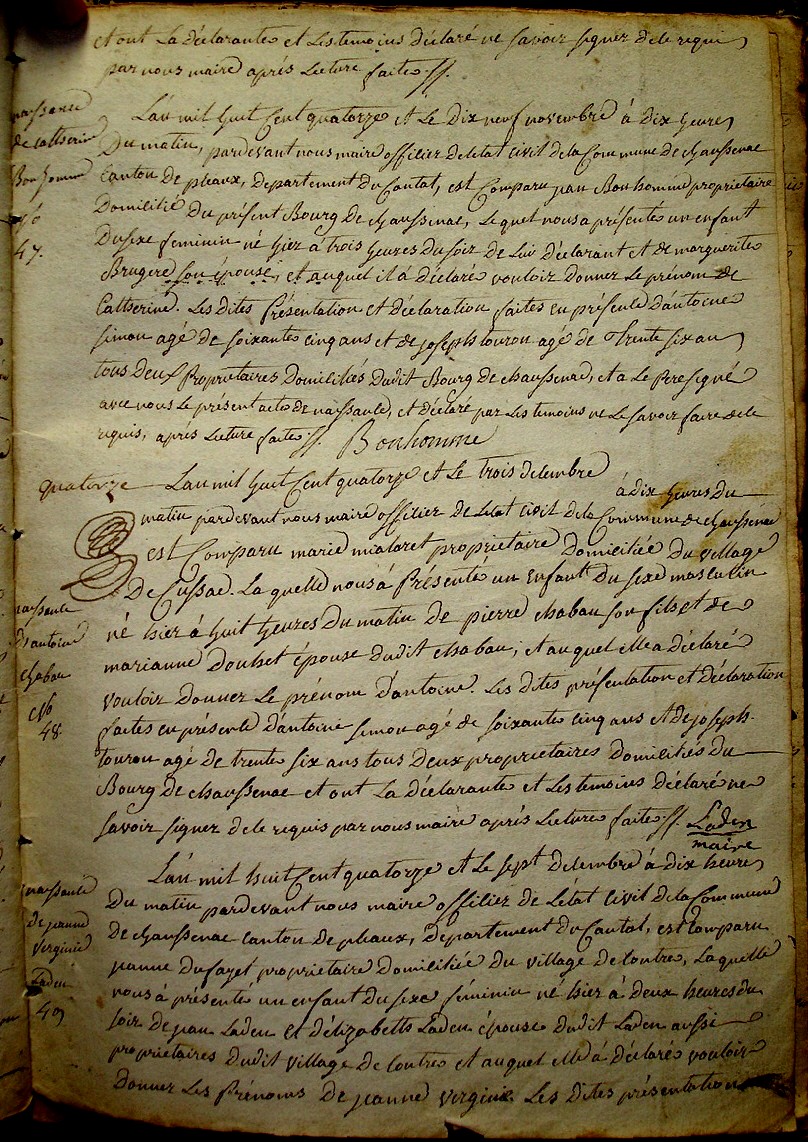 et ont La déclarante et Les temoins déclaré ne savoir signer de le requi
par nous maire après Lecture faite ff.
naissance
de Catherine
Bonhomme
47.
L'an mil huit Cent quatorze et Le dix neuf novembre à dix heures
Du matin, pardevant nous maire officier de letat civil de la Commune de chaussenac
canton De pleaux, departement du Cantal, est Comparu jean Bonhomme proprietaire
Domicilié Du présent Bourg de chaussenac, Lequel nous a présenté un enfant
Du sexe feminin né hier à trois heures du soir de Lui Déclarant et de marguerite
Brugere son épouse, et auquel il a déclaré vouloir Donner Le prénom de
Catherine. Les dites Présentation et déclaration faites en présence d'antoine
simon agé de soixante cinq ans et de joseph touron agé de Trente six ans
tous Deux Proprietaires Domiciliés Dudit Bourg de chaussenac, et a Le Pere signé
avec nous Le présent acte de naissance, et déclaré par Les temoins ne Le savoir faire de le
requis, après Lecture faite ff. Bonhomme
quatorze L'an mil huit Cent quatorze et Le trois decembre
à dix heures du
matin pardevant nous maire officier de Letat civil de la Commune de chaussenac
est Comparu marie mialaret proprietaire Domiciliée Du village
De Cussac. La quelle nous a Présenté un enfant Du sexe masculin
naissance
d'antoine
chabau
48.
né hier à huit heures Du matin De pierre chabau son fils et de
marianne Doulset épouse Dudit chabau; et auquel elle a déclaré
vouloir Donner Le prénom d'antoine. Les dites présentation et déclaration
faites en présence d'antoine simon agé de soixante cinq ans et de joseph
touron agé de trente six ans tous Deux proprietaires Domiciliés Du
Bourg De chaussenac et ont La déclarante et Les temoins déclaré ne
savoir signer de le requis par nous maire après Lecture faite ff. Laden
maire
naissance
de jeanne
virginie
Laden
49
L'an mil huit Cent quatorze et Le sept decembre à dix heures
Du matin pardevant nous maire officier de Letat Civil de la Commune
De chaussenac canton De pleaux, departement du Cantal, est Comparu
jeanne Dufayet proprietaire Domiciliée Du village De Contre, Laquelle
nous à présenté un enfant du sexe féminin né hier à deux heures du
soir De jean Laden et d'élizabeth Laden épouse dudit Laden aussi
proprietaires dudit village de Contre et auquel elle à déclaré vouloir
Donner Les Prénoms De jeanne virginie. Les Dites présentation